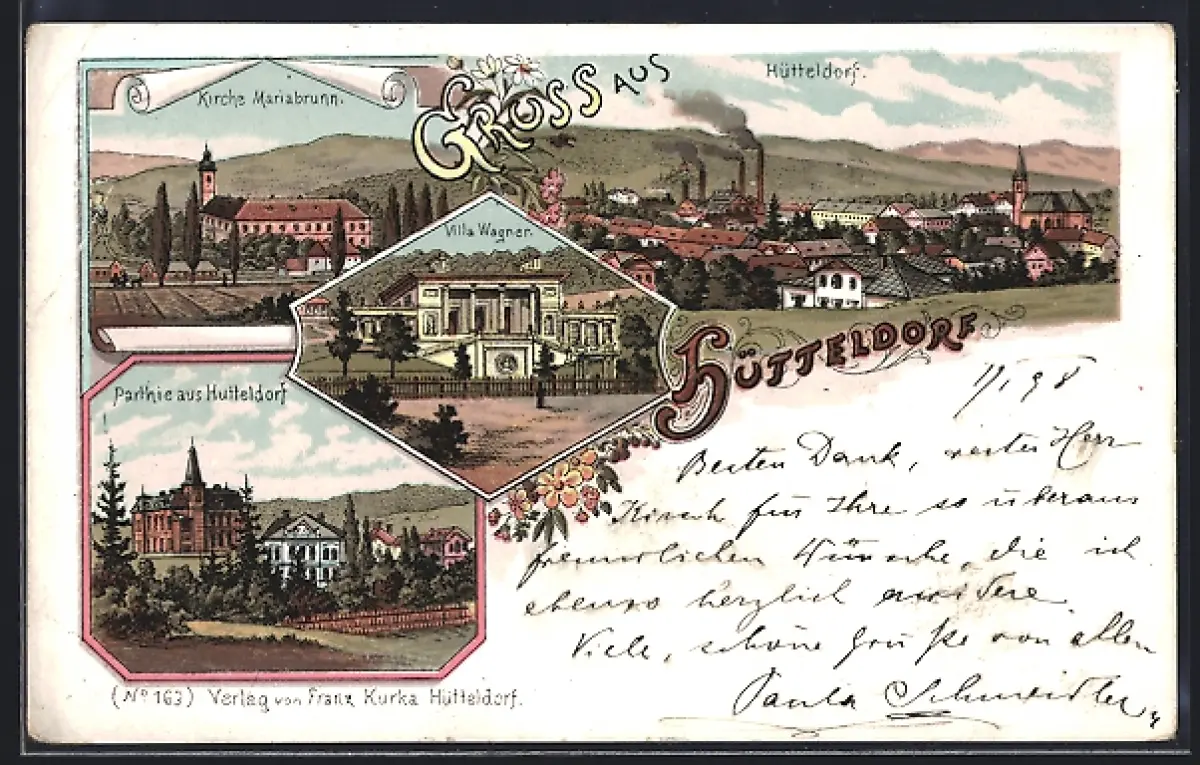 Kirche Mariabrunn.
GRUSS AUS
Hütteldorf.
Villa Wagner.
HÜTTELDORF
Parthie aus Hutteldorf
Besten Dank, Herr
für Ihre so überaus
freundlichen Wünsche, die ich
ebenso herzlich erwidere.
Viele, schöne Grüße von allen
Paula
(No 163) Verlag von Franz Kurka Hütteldorf.